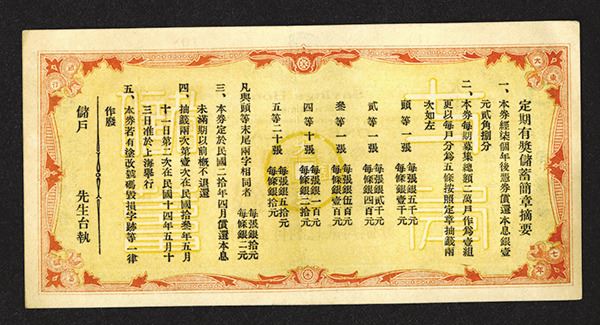 定期有獎儲蓄簡章摘要
一、本券經柒個年後憑券償還本息銀壹
元貳角捌分
二、本券每期募集總額二萬戶作爲壹組
更以每戶分爲五條按照定章抽籤兩
次如左
頭等一張 每張銀五千元 每條銀壹千元
貳等一張 每張銀貳千元 每條銀四百元
叁等一張 每張銀伍百元 每條銀壹百元
四等十張 每張銀一百元 每條銀二拾元
五等二十張 每張銀五拾元 每條銀拾元
凡與頭等末尾兩字相同者 每張銀拾元 每條銀二元
三、本券定於民國二拾年四月償還本息
未滿期以前概不退還
四、抽籤兩次第壹次在民國拾叁年五月
十一日第二次在民國十四年五月十
三日准於上海舉行
五、本券若有塗改號碼毀損字跡等一律
作廢
儲戶 先生台執